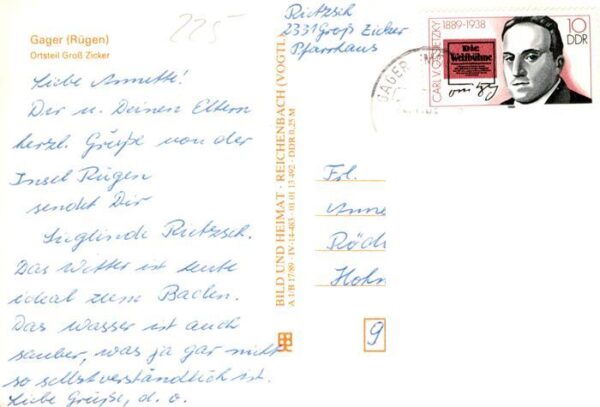 225
Gager (Rügen)
Ortsteil Groß Zicker
Liebe Annette!
Dir u. Deinen Eltern
herzl. Grüße von der
Insel Rügen
sendet Dir
Rietzsch.
Das Wetter ist heute
ideal zum Baden.
Das Wasser ist auch
sauber, was ja gar nicht
so selbstverständlich ist.
Liebe Grüße, d. o.
BILD UND HEIMAT · REICHENBACH (VOGTL
A 1/B 17/89 · IV-14-483 · 01 01 13 492 · DDR 0,25 M
Rietzsch
2331 Groß Zicker
Pfarrhaus
GAGER
CARL V. OSSIETZKY 1889-1938
10
DDR
Die
Weltbühne
Frl.
Anne
Röd
Hohn
9